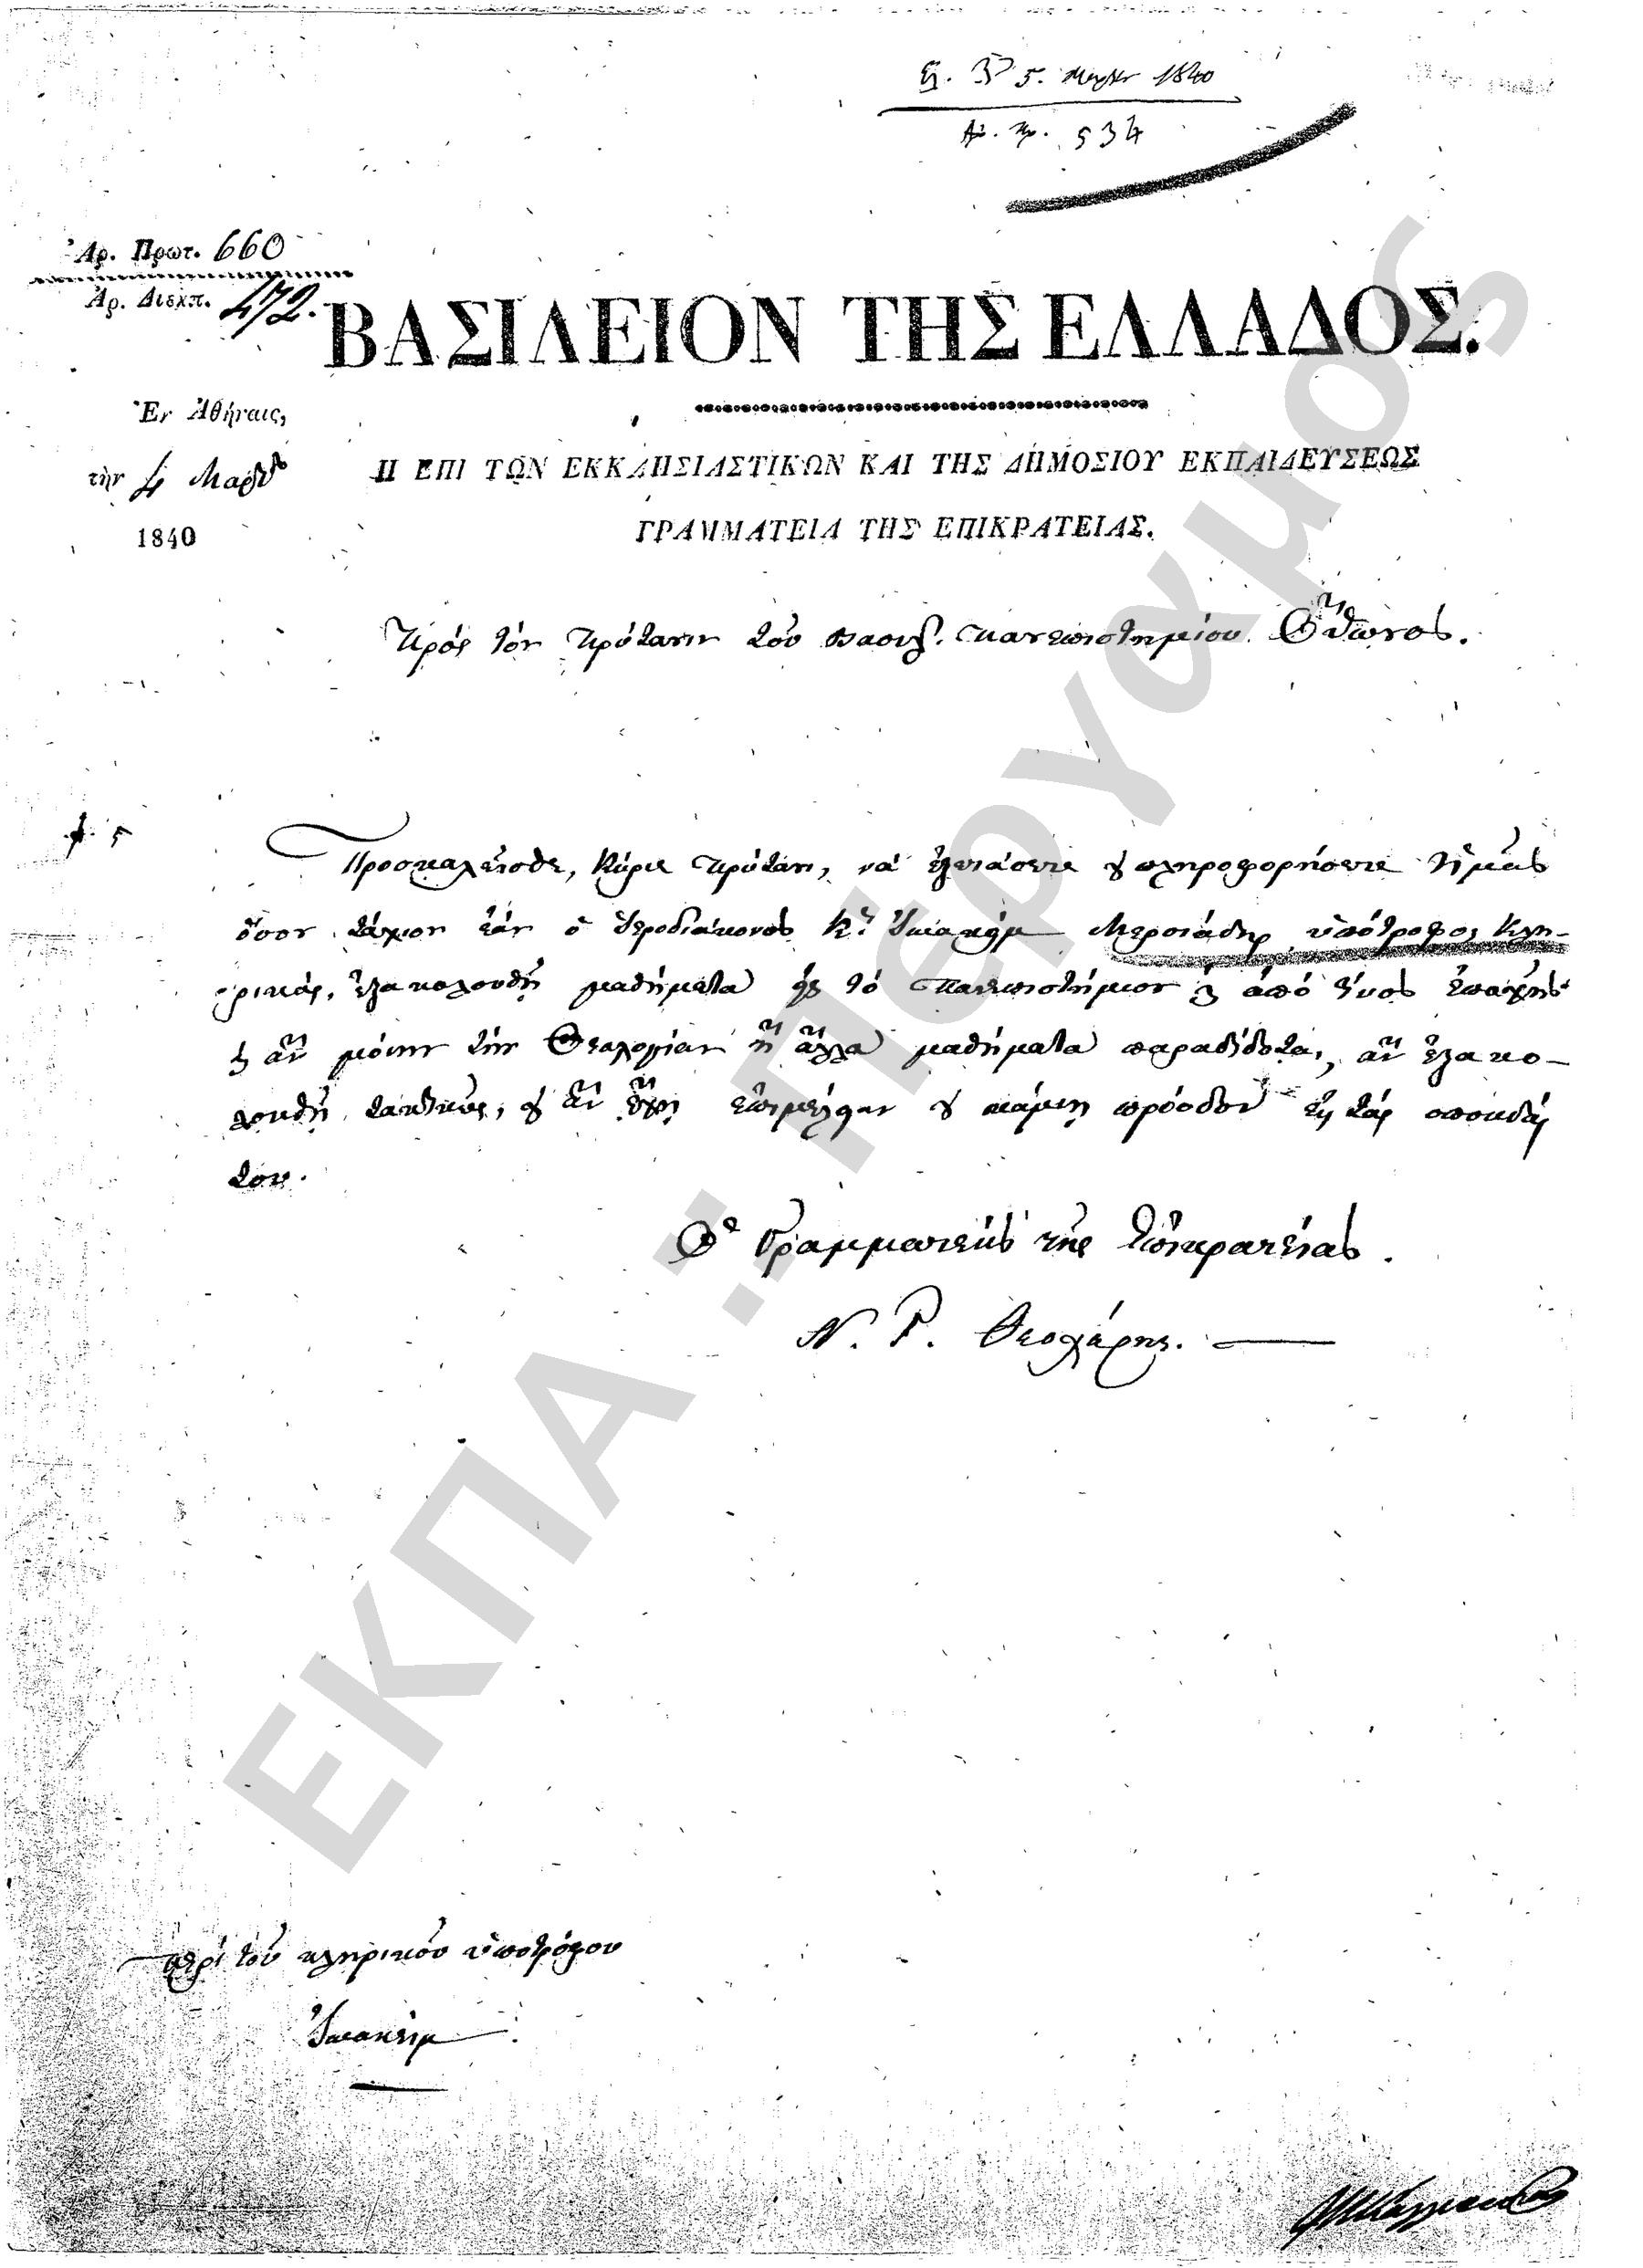 5. 1840
Αρ. Πρ. 534
Ἀρ. Πρωτ. 660
Ἀρ. Διεκπ. 472.
ΒΑΣΙΛΕΙΟΝ ΤΗΣ ΕΛΛΑΔΟΣ.
Ἐν Ἀθήναις,
τὴν 4 Μαρτίου
1840
Η ΕΠΙ ΤΩΝ ΕΚΚΛΗΣΙΑΣΤΙΚΩΝ ΚΑΙ ΤΗΣ ΔΗΜΟΣΙΟΥ ΕΚΠΑΙΔΕΥΣΕΩΣ
ΓΡΑΜΜΑΤΕΙΑ ΤΗΣ ΕΠΙΚΡΑΤΕΙΑΣ.
Πρός τόν Πρύτανιν τοῦ Βασιλ. Πανεπιστημίου Ὄθωνος.
Προσκαλεῖσθε, Κύριε Πρύτανι, νά ἐξετάσετε καί πληροφορήσετε ἡμᾶς
ὅσον τάχιον ἐάν ὁ ἱεροδιάκονος Κ. Ἰωακείμ ὑπότροφος Κλη-
ρικός, ἐξακολουθῇ μαθήματα εἰς τό Πανεπιστήμιον καί ἀπό τίνος ἐποχῆς
καί ἄν μόνην τήν Θεολογίαν ἤ ἄλλα μαθήματα παραδίδεται, ἄν ἐξακο-
λουθῇ τακτικῶς, καί ἄν ἔχῃ ἐπιμέλειαν καί κάμνῃ πρόοδον εἰς τάς σπουδάς
του.
Ὁ Γραμματεύς τῆς Ἐπικρατείας.
Ν. Γ. Θεοχάρης.
ΕΚΠΑ :: Πέργαμος
περί τοῦ κληρικοῦ ὑποτρόφου
Ἰωακείμ.